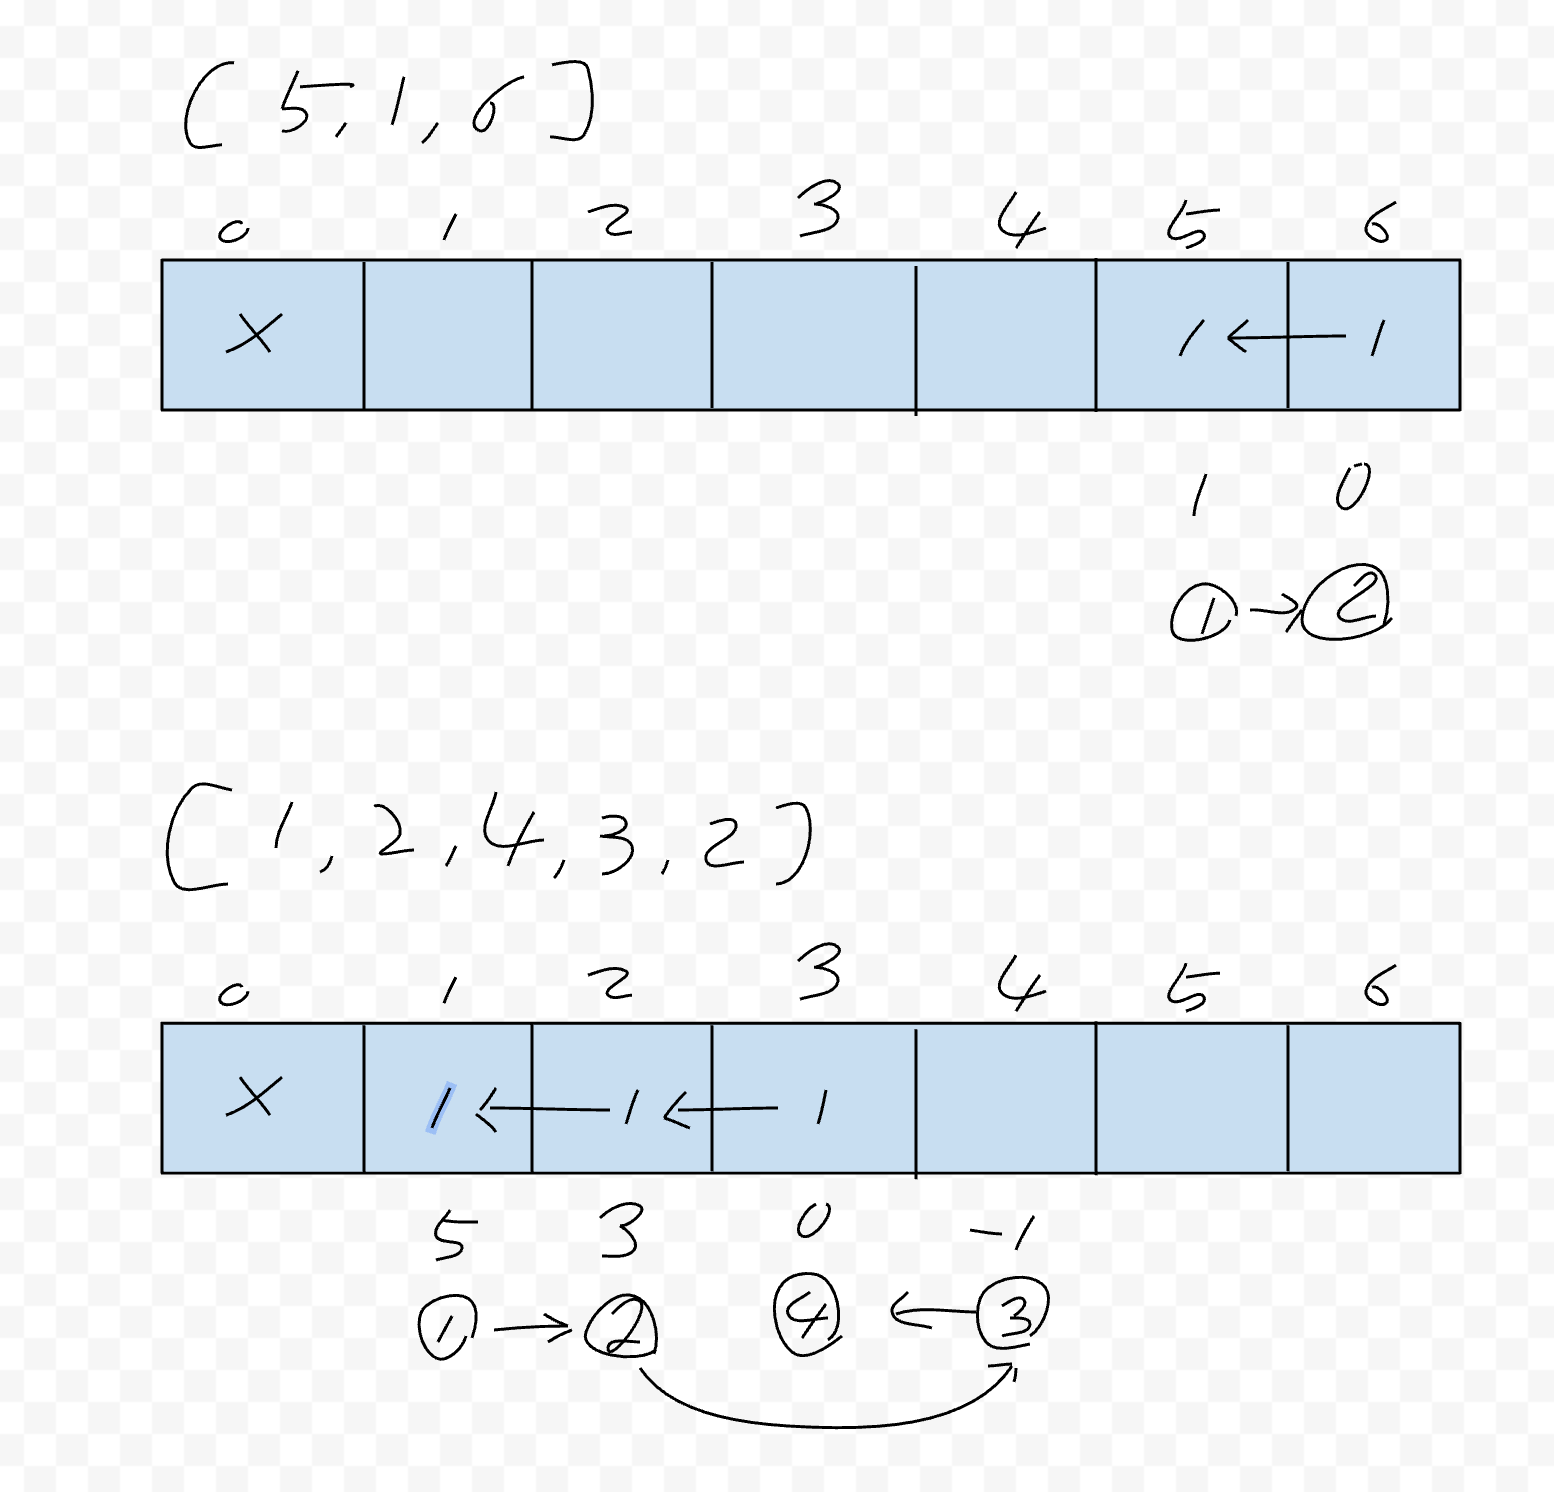 [5,1,6]
0 1 2 3 4 5 6
X 1 ← 1
1 0
① → ②
[1,2,4,3,2]
0 1 2 3 4 5 6
X 1 ← 1 ← 1
5 3 0 -1
① → ② ④ ← ③